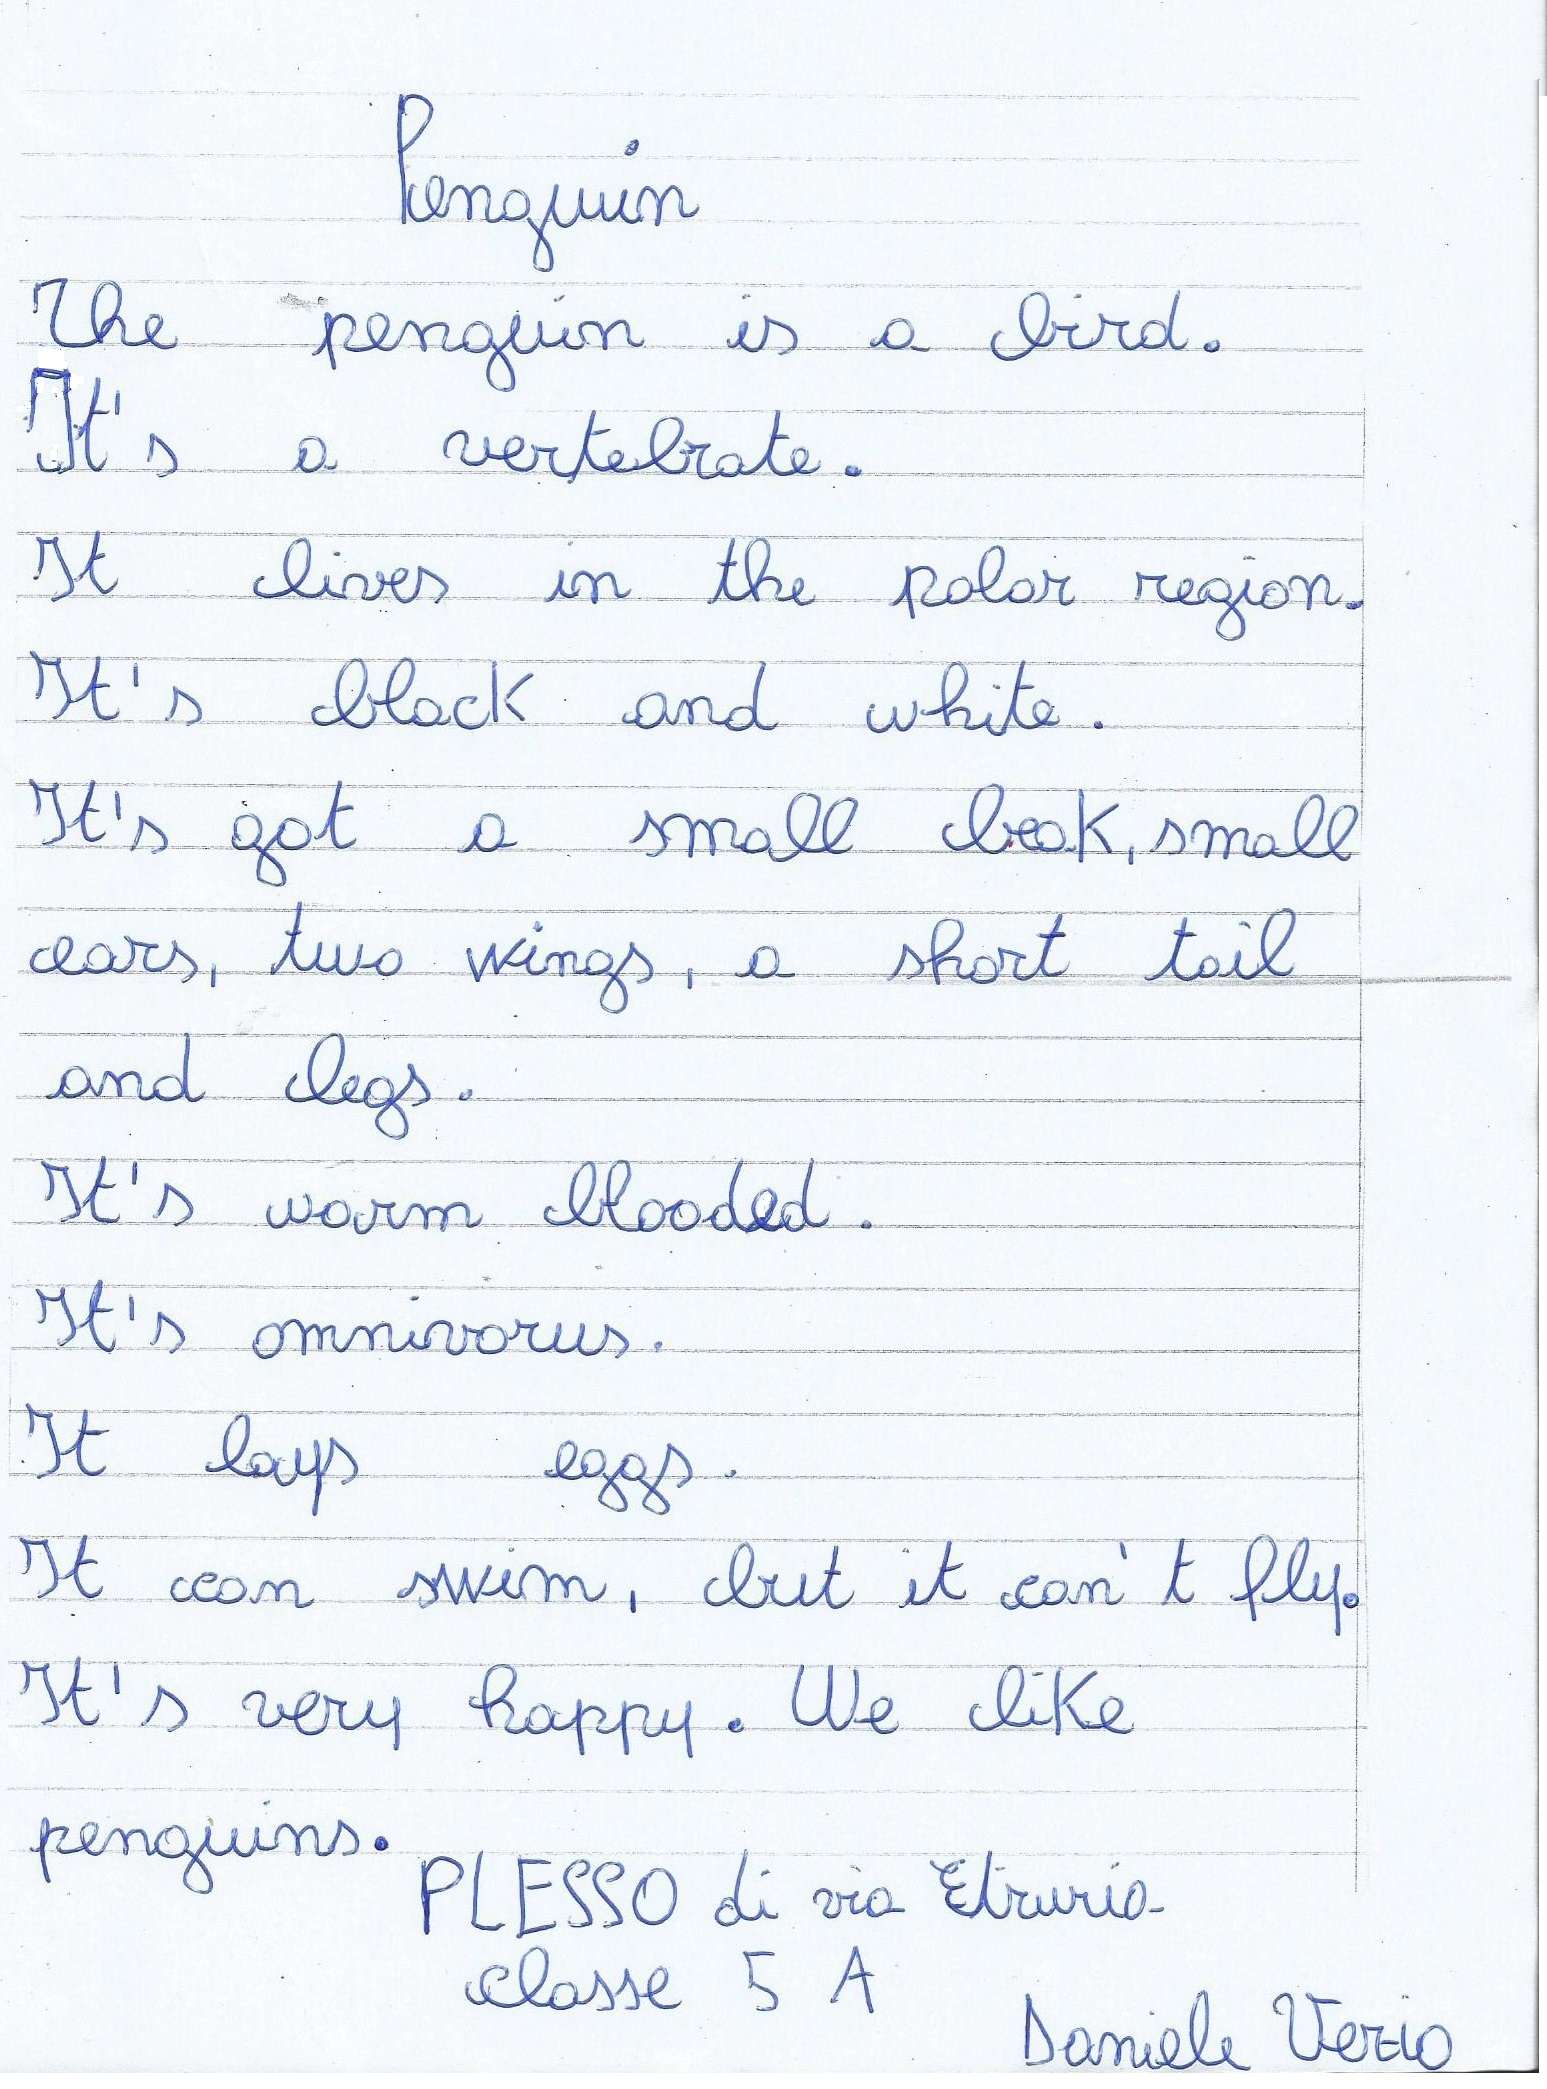 Penguin
The penguin is a bird.
It's a vertebrate.
It lives in the polar region.
It's black and white.
It's got a small beak, small
ears, two wings, a short tail
and legs.
It's warm blooded.
It's omnivorus.
It lays eggs.
It can swim, but it can't fly.
It's very happy. We like
penguins.
PLESSO di via Etruria
classe 5 A
Daniele Verzio